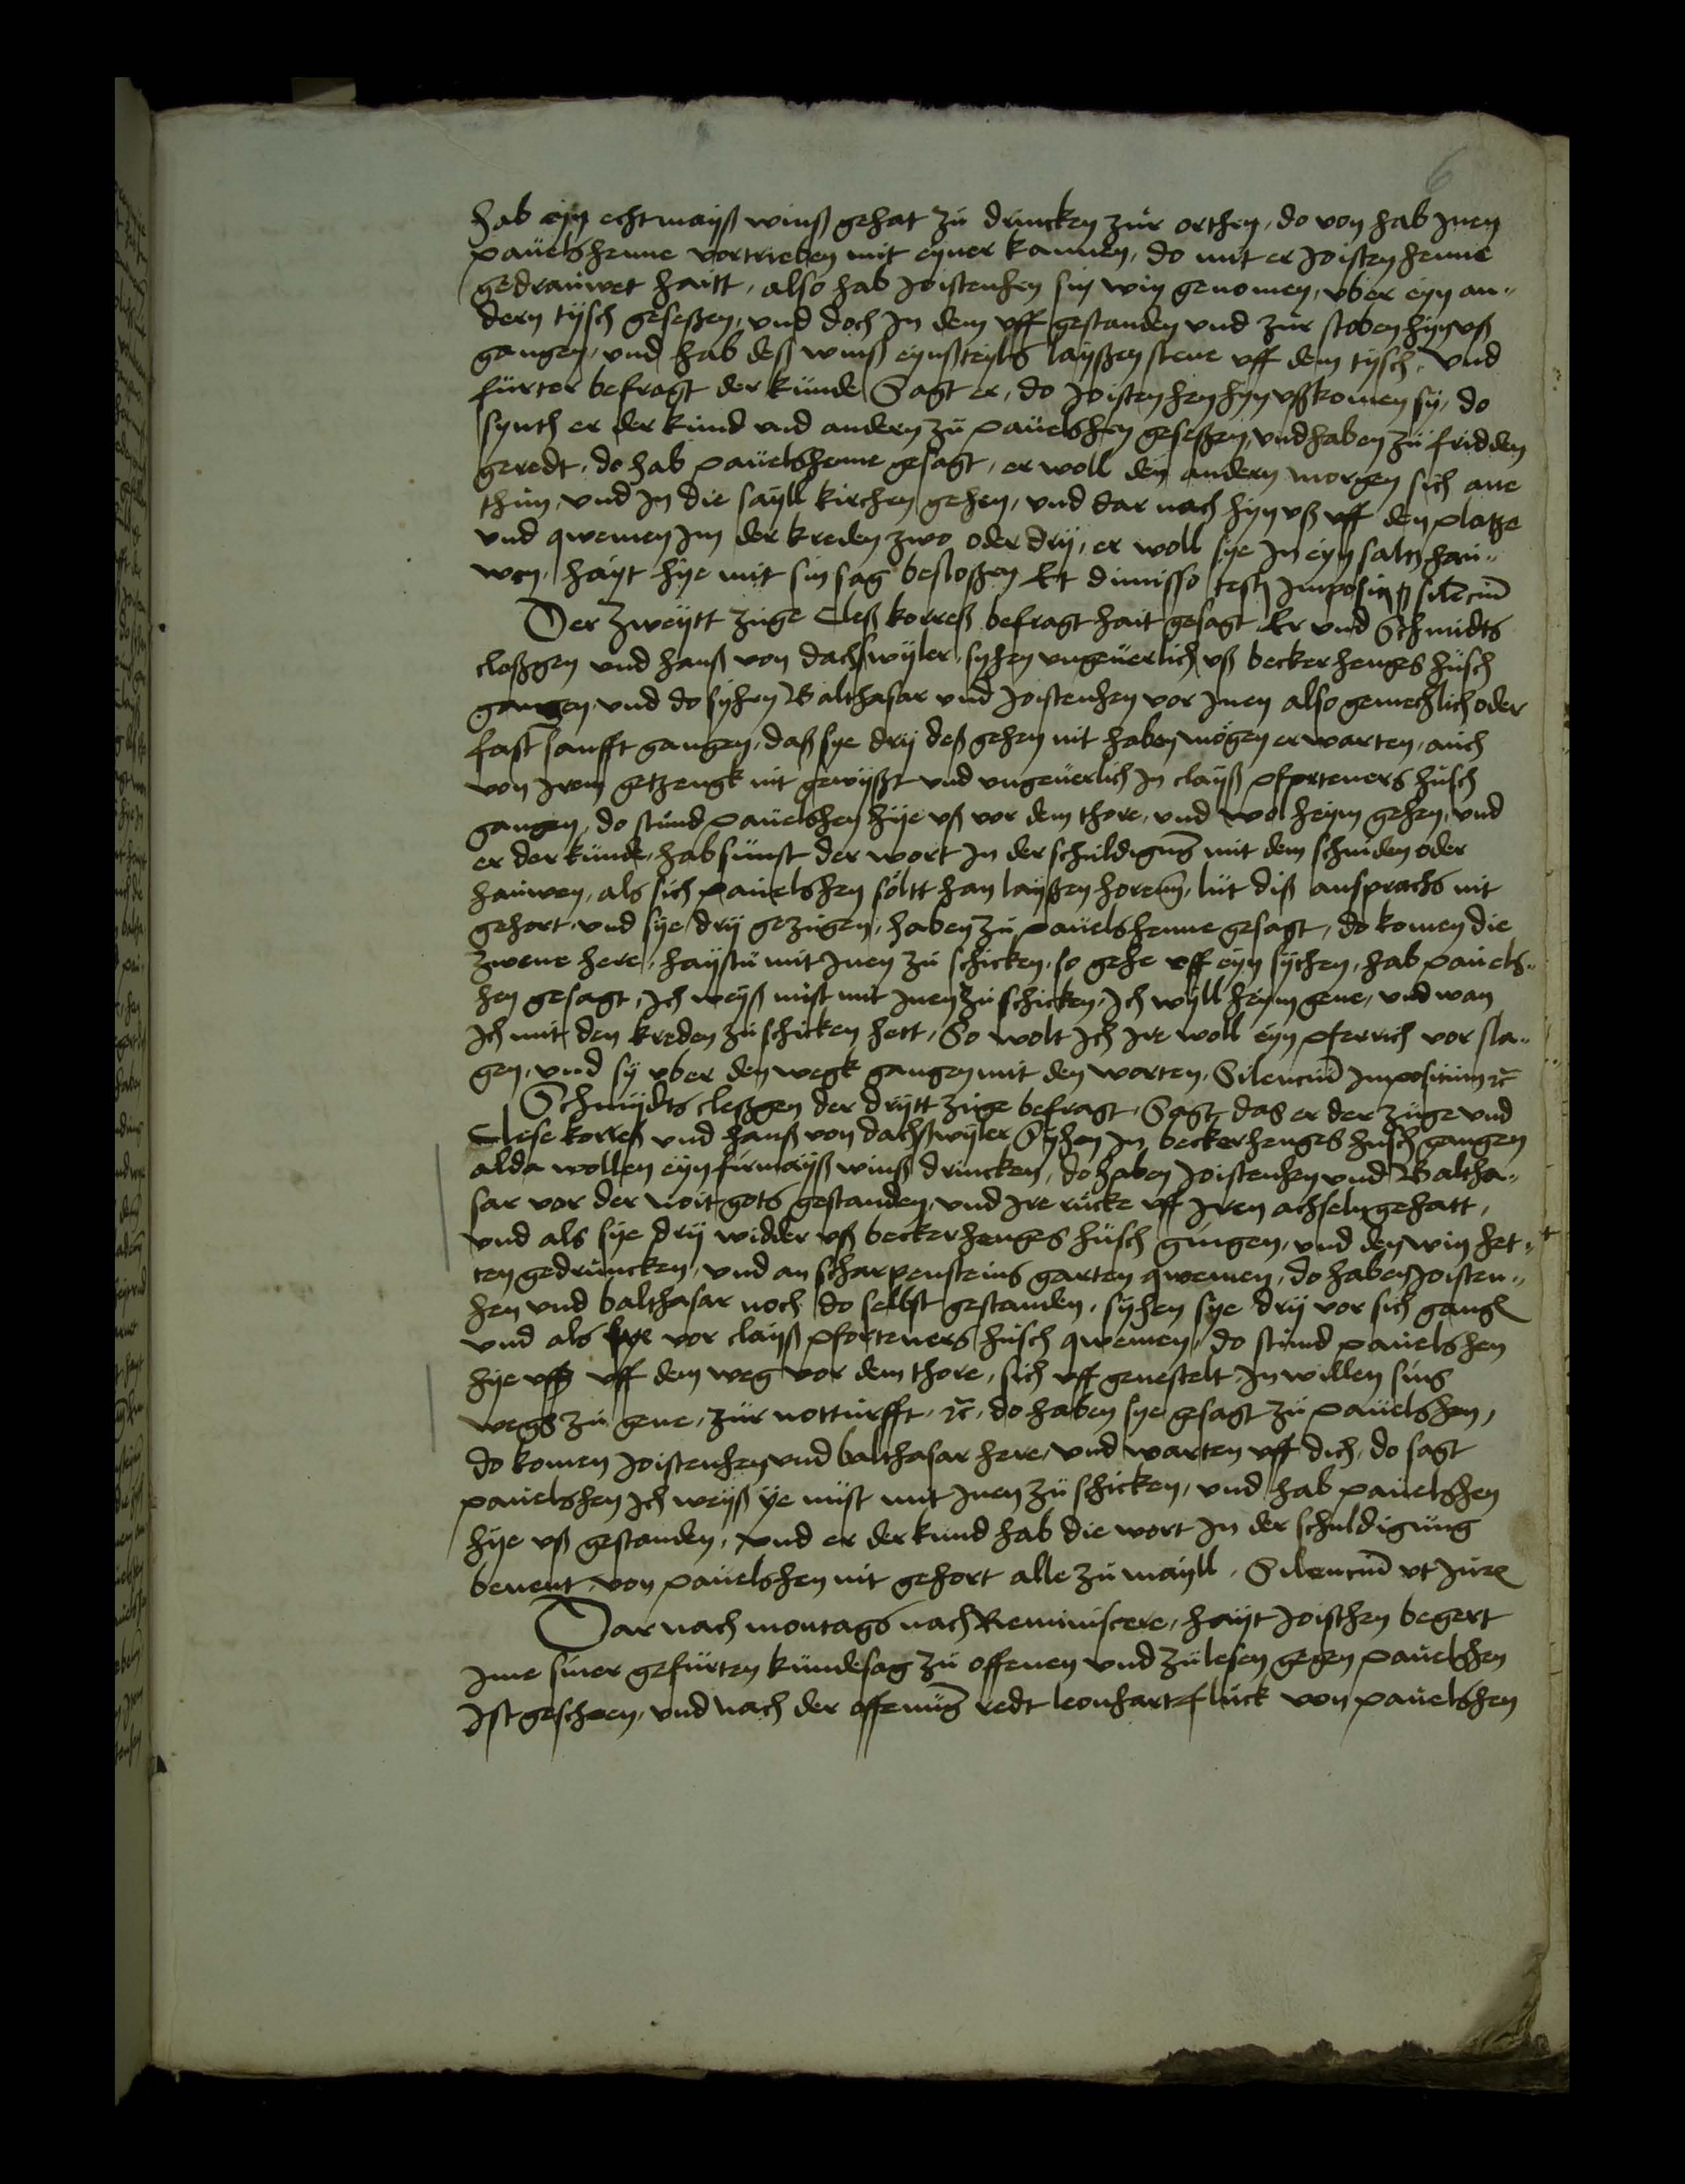 6
hab eyn echtmayß winß gehat zü drincken zür orthen, do von hab Inen
pauelshenne vortrieben mit eyner kannen, do mit er Joisten henne
gedrauwet haitt, also hab Joistenhen sin win genomen, vber eyn an„
dern tysch geseßen, vnd doch In dem vff gestanden vnd zür stoben hynvß
gangen, vnd hab deß winß eynßteyls layßen stene vff dem tysch, vnd
fürter befragt der künde Sagt er, do Joisten hen hyn vßkomen sy, do
synth er der künd vnd andern zü pauelshen geseßen, vnd haben zü fridden
geredt, do hab pauelshenne gesagt, er woll den andern morgen sich ane
thün, vnd In die sayll kirchen gehen, vnd dar nach hyn vß vff den platze
vnd qwemen Im der kreden zwo oder dry, er woll sye In eyn saltz hau„
wen, hayt hye mit sin sag besloßen Et dimisso testi Impositum silencium
Der zweytt züge Cleß korreß befragt hait gesagt Er vnd Schmidts
cleßgen vnd hanß von dachßwyler, syhen vngeuerlich vß beckerhenges hüsch
gangen, vnd do syhen Balthasar vnd Joistenhen vor Inen also gemechlich oder
fast sanfft gangen, daß sye dry deß gehen nit haben mögen erwarten, auch
von Irem getzengk nit gewyßt vnd vngeuerlich In clayß pforteners hüsch
gangen, do stünd pauelshen hye vß vor dem thore, vnd wol heym gehen, vnd
er der künde, hab sünst der wort In der schuldigung mit dem schniden oder
hauwen, als sich pauelshen söltt han layßen horenn, lüt diß ansprachs nit
gehort, vnd sye dry gezügen, haben zü pauelshenne gesagt, do komen die
zwene here, haystu mit Inen zü schicken, so gehe vff eyn sythen, hab pauels„
hen gesagt, Ich weyß nüst mit Inen zü schicken, Ich wyll heym gene, vnd wan
Ich mit den kreden zü schicken hett, So wolt Ich Ire woll eyn pferrich vor sla„
gen, vnd sy vber den wegk gangen mit den worten, Silencium Impositum etc
Schmydts cleßgen der drytt züge befragt, Sagt, das er der züge vnd
Clese korreß vnd hanß von dachßwyler Syhen In beckerhenges hüsch gangen
alda wollen eyn firmayß winß drincken, do haben Joistenhen vnd Baltha„
sar vor der noit gots gestanden, vnd Ire rücke vff Iren achseln gehatt,
vnd als sye dry widder vß beckerhenges hüsch gingen, vnd den win het„
ten gedruncken, vnd an scharpensteins garten qwemen, do haben Joisten„
hen vnd balthasar noch do selbst gestanden, syhen sye dry vor sich gangen
vnd als sye vor clayß pforteners hüsch qwemen, do stünd pauelshen
hye vß vff dem weg vor dem thore, sich vff genestelt In willen sins
wegs zü gene, zür notturfft, etc, do haben sye gesagt zü pauelshen,
do komen Joistenhen vnd balthasar here, vnd warten vff dich, do sagt
pauelshen Ich weyß ye nüst mit Inen zü schicken, vnd hab pauelshen
hye vß gestanden, vnd er der kund hab die wort In der schuldigung
benent, von pauelshen nit gehort alle zü mayll. Silencium vt Jure
Dar nach montags nach Reminiscere, hayt Joisthen begert
Ime siner gefürten kündesag zü offenen vnd zü lesen gegen pauelshen
Ist gescheen, vnd nach der offenung redt leonhart flück von pauelshen